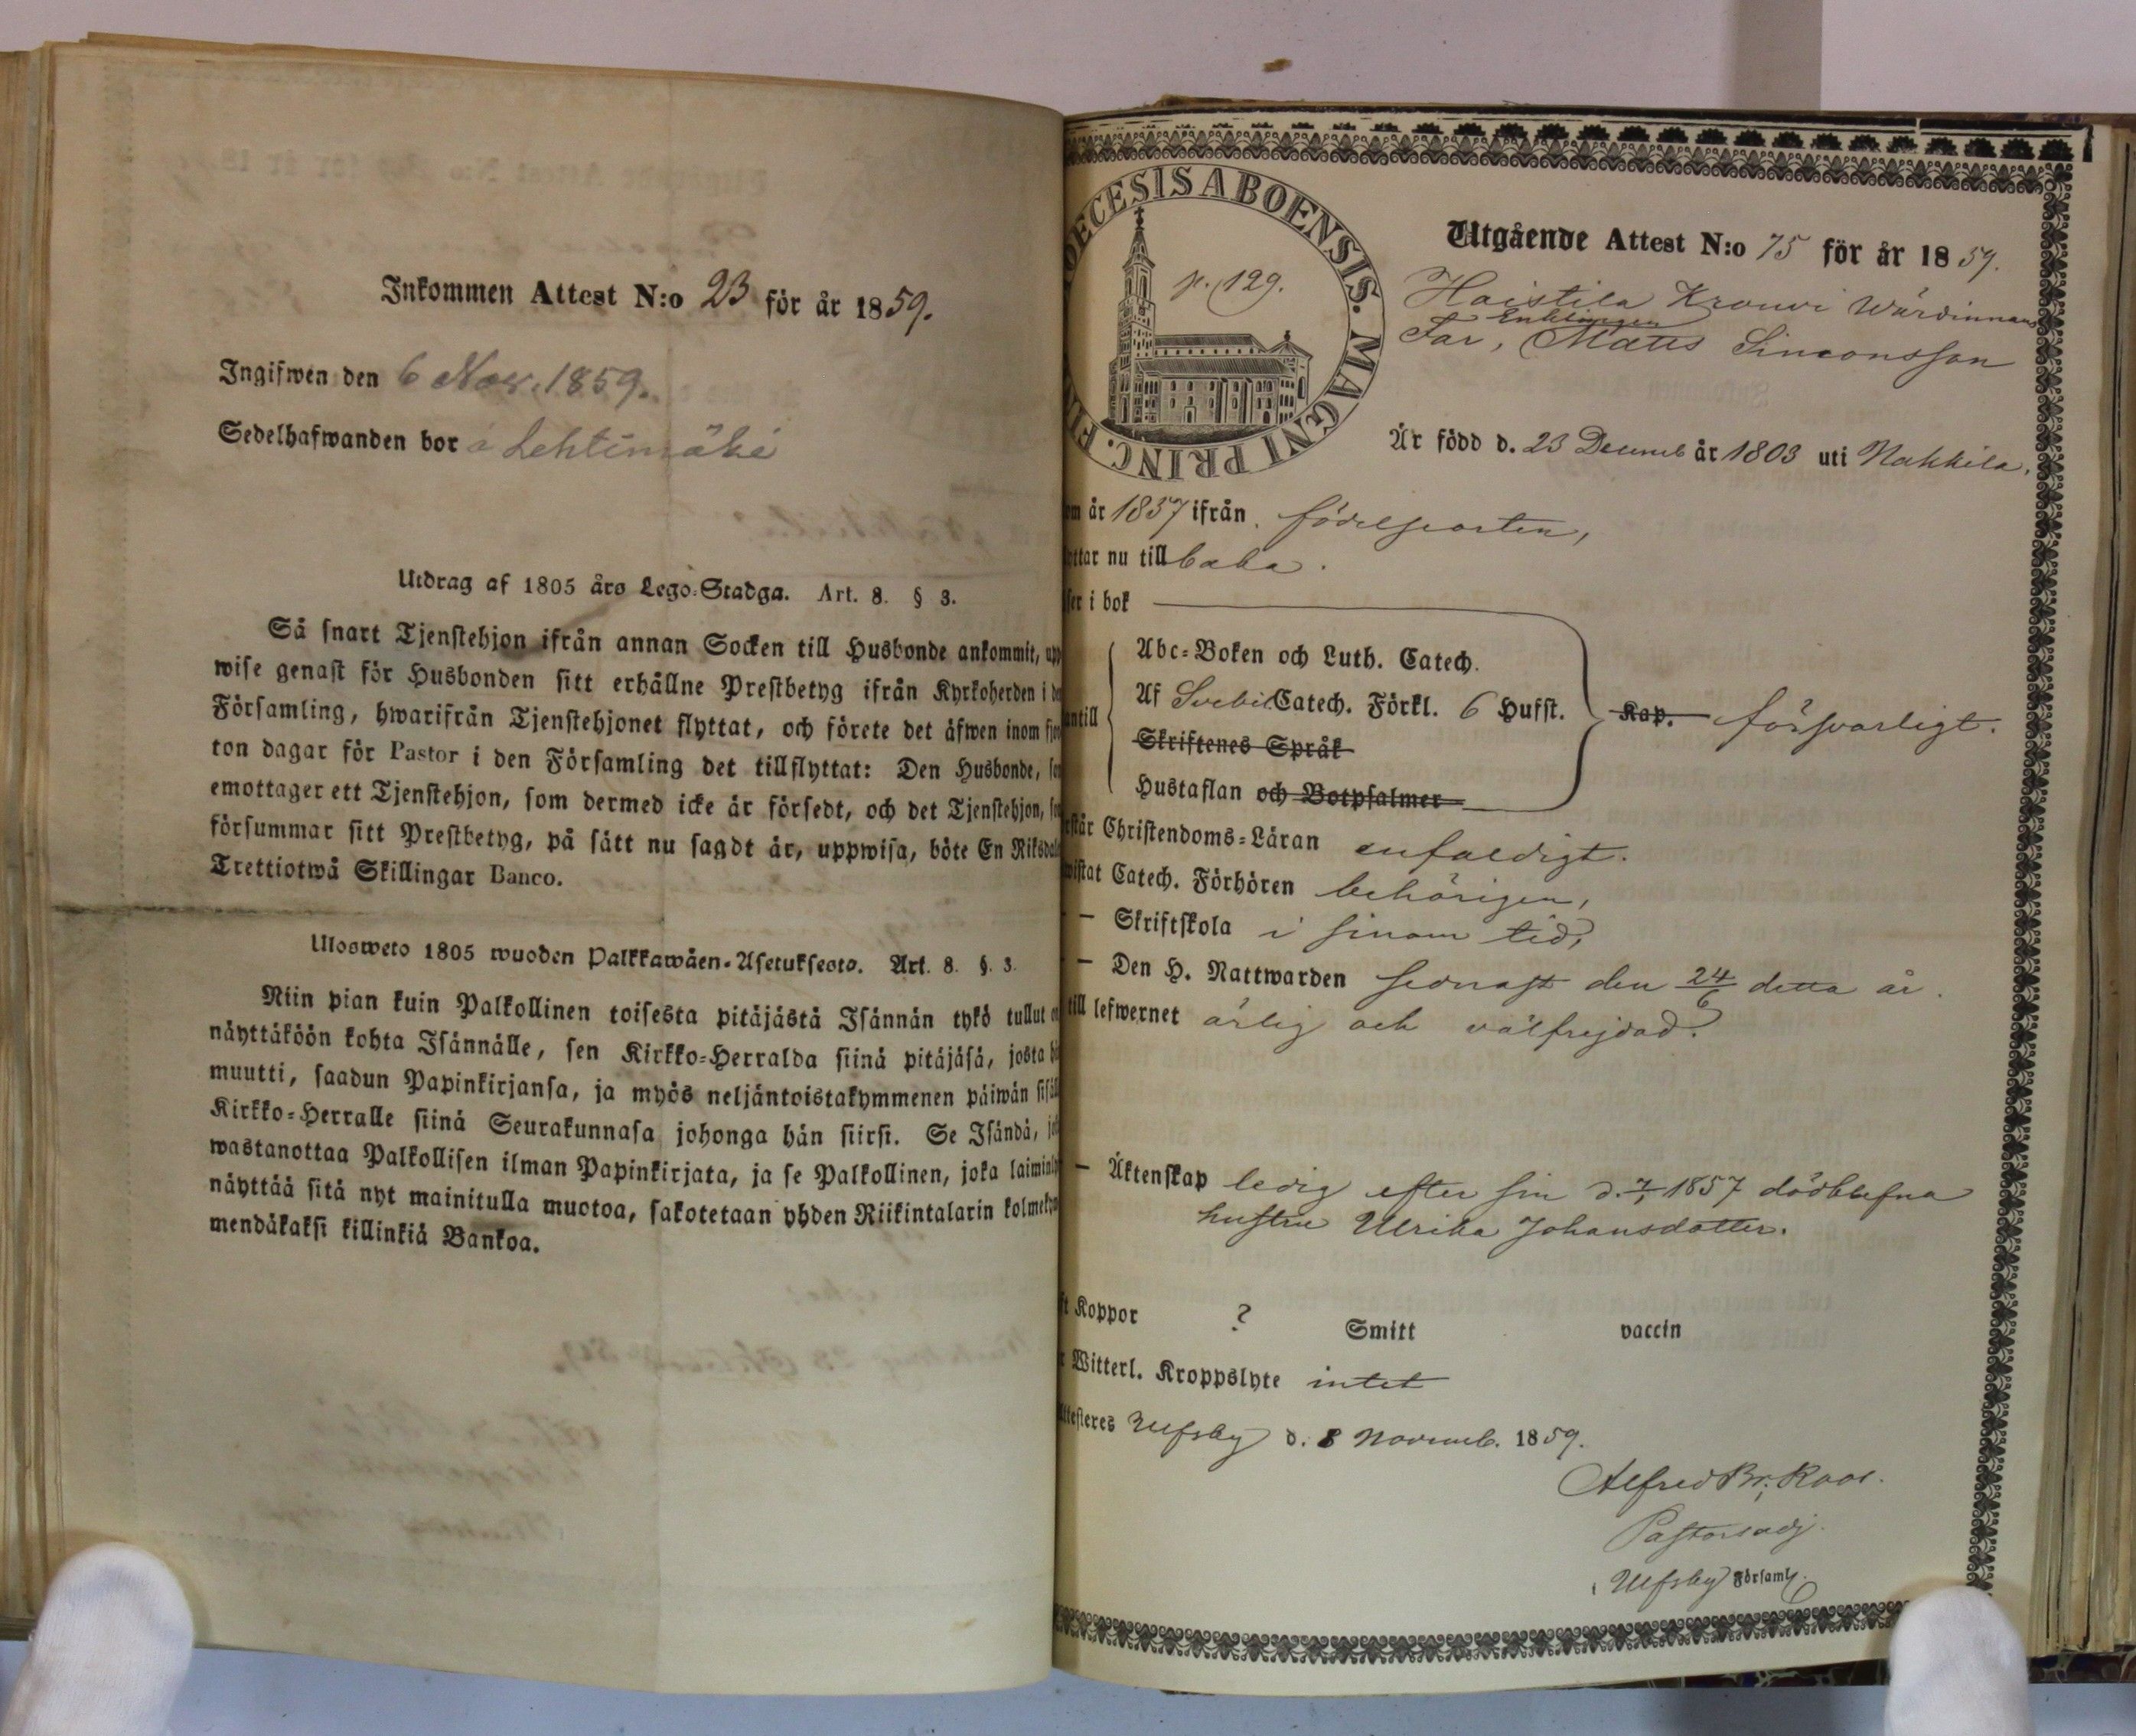 Inkommen Attest N:o 23 för år 1859.
Ingifwen den 6 Nov. 1859.
Sedelhafwanden bor å Lehtimäki
Utdrag af 1805 års Lego-Stadga. Art. 8. § 3.
Så snart Tjenstehjon ifrån annan Socken till Husbonde ankommit, upp
wise genast för Husbonden sitt erhållne Prestbetyg ifrån Kyrkoherden i de
Församling, hwarifrån Tjenstehjonet flyttat, och förete det äfwen inom fjor
ton dagar för Pastor i den Församling det tillflyttat: Den Husbonde, som
emottager ett Tjenstehjon, som dermed icke är försedt, och det Tjenstehjon, som
försummar sitt Prestbetyg, på sätt nu sagdt är, uppwisa, böte En Riksdaler
Trettiotwå Skillingar Banco.
Ulosweto 1805 wuoden Palkkawäen-Asetuksesta. Art. 8. §. 3.
Niin pian kuin Palkollinen toisesta pitäjästä Isännän tykö tullut on
näyttäköön kohta Isännälle, sen Kirkko-Herralda siinä pitäjäsä, josta hän
muutti, saadun Papinkirjansa, ja myös neljäntoistakymmenen päiwän sisäll
Kirkko-Herralle siinä Seurakunnasa johonga hän siirsi. Se Isändä, jo
wastanottaa Palkollisen ilman Papinkirjata, ja se Palkollinen, joka laiminly
näyttää sitä nyt mainitulla muotoa, sakotetaan yhden Riikintalarin kolmeky
mendäkaksi killinkiä Bankoa.
OECESIS ABOENSIS. MAGNI PRINC. FI
p. 129.
Utgående Attest N:o 75 för år 1859.
Haistila Krouvi Wärdinnans
Enklingen
Far, Matts Simonsson
Är född d. 23 Decemb år 1803 uti Nakkila.
om år 1857 ifrån födelseorten,
yttar nu till baka.
ser i bok
Abc-Boken och Luth. Catech.
antill Af Svebil. Catech. Förkl. 6 Hufst. Kap. försvarligt.
Skriftenes Språk
Hustaflan och Botpsalmer
rstår Christendoms-Läran enfaldigt.
wistat Catech. Förhören behörigen,
— Skriftskola i sinom tid,
— Den H. Nattwarden sednast den 24/6 detta år.
till lefwernet ärlig och välfrejdad.
— Äktenskap ledig efter sin d. 7/1 1857 dödblefna
hustru Ulrika Johansdotter.
ft Koppor ? Smitt vaccin
r Witterl. Kroppslyte intet
ttesteres Ulfsby d. 8 Novemb. 1859.
Alfred Br. Roos.
Pastorsadj.
i Ulfsby Församl.